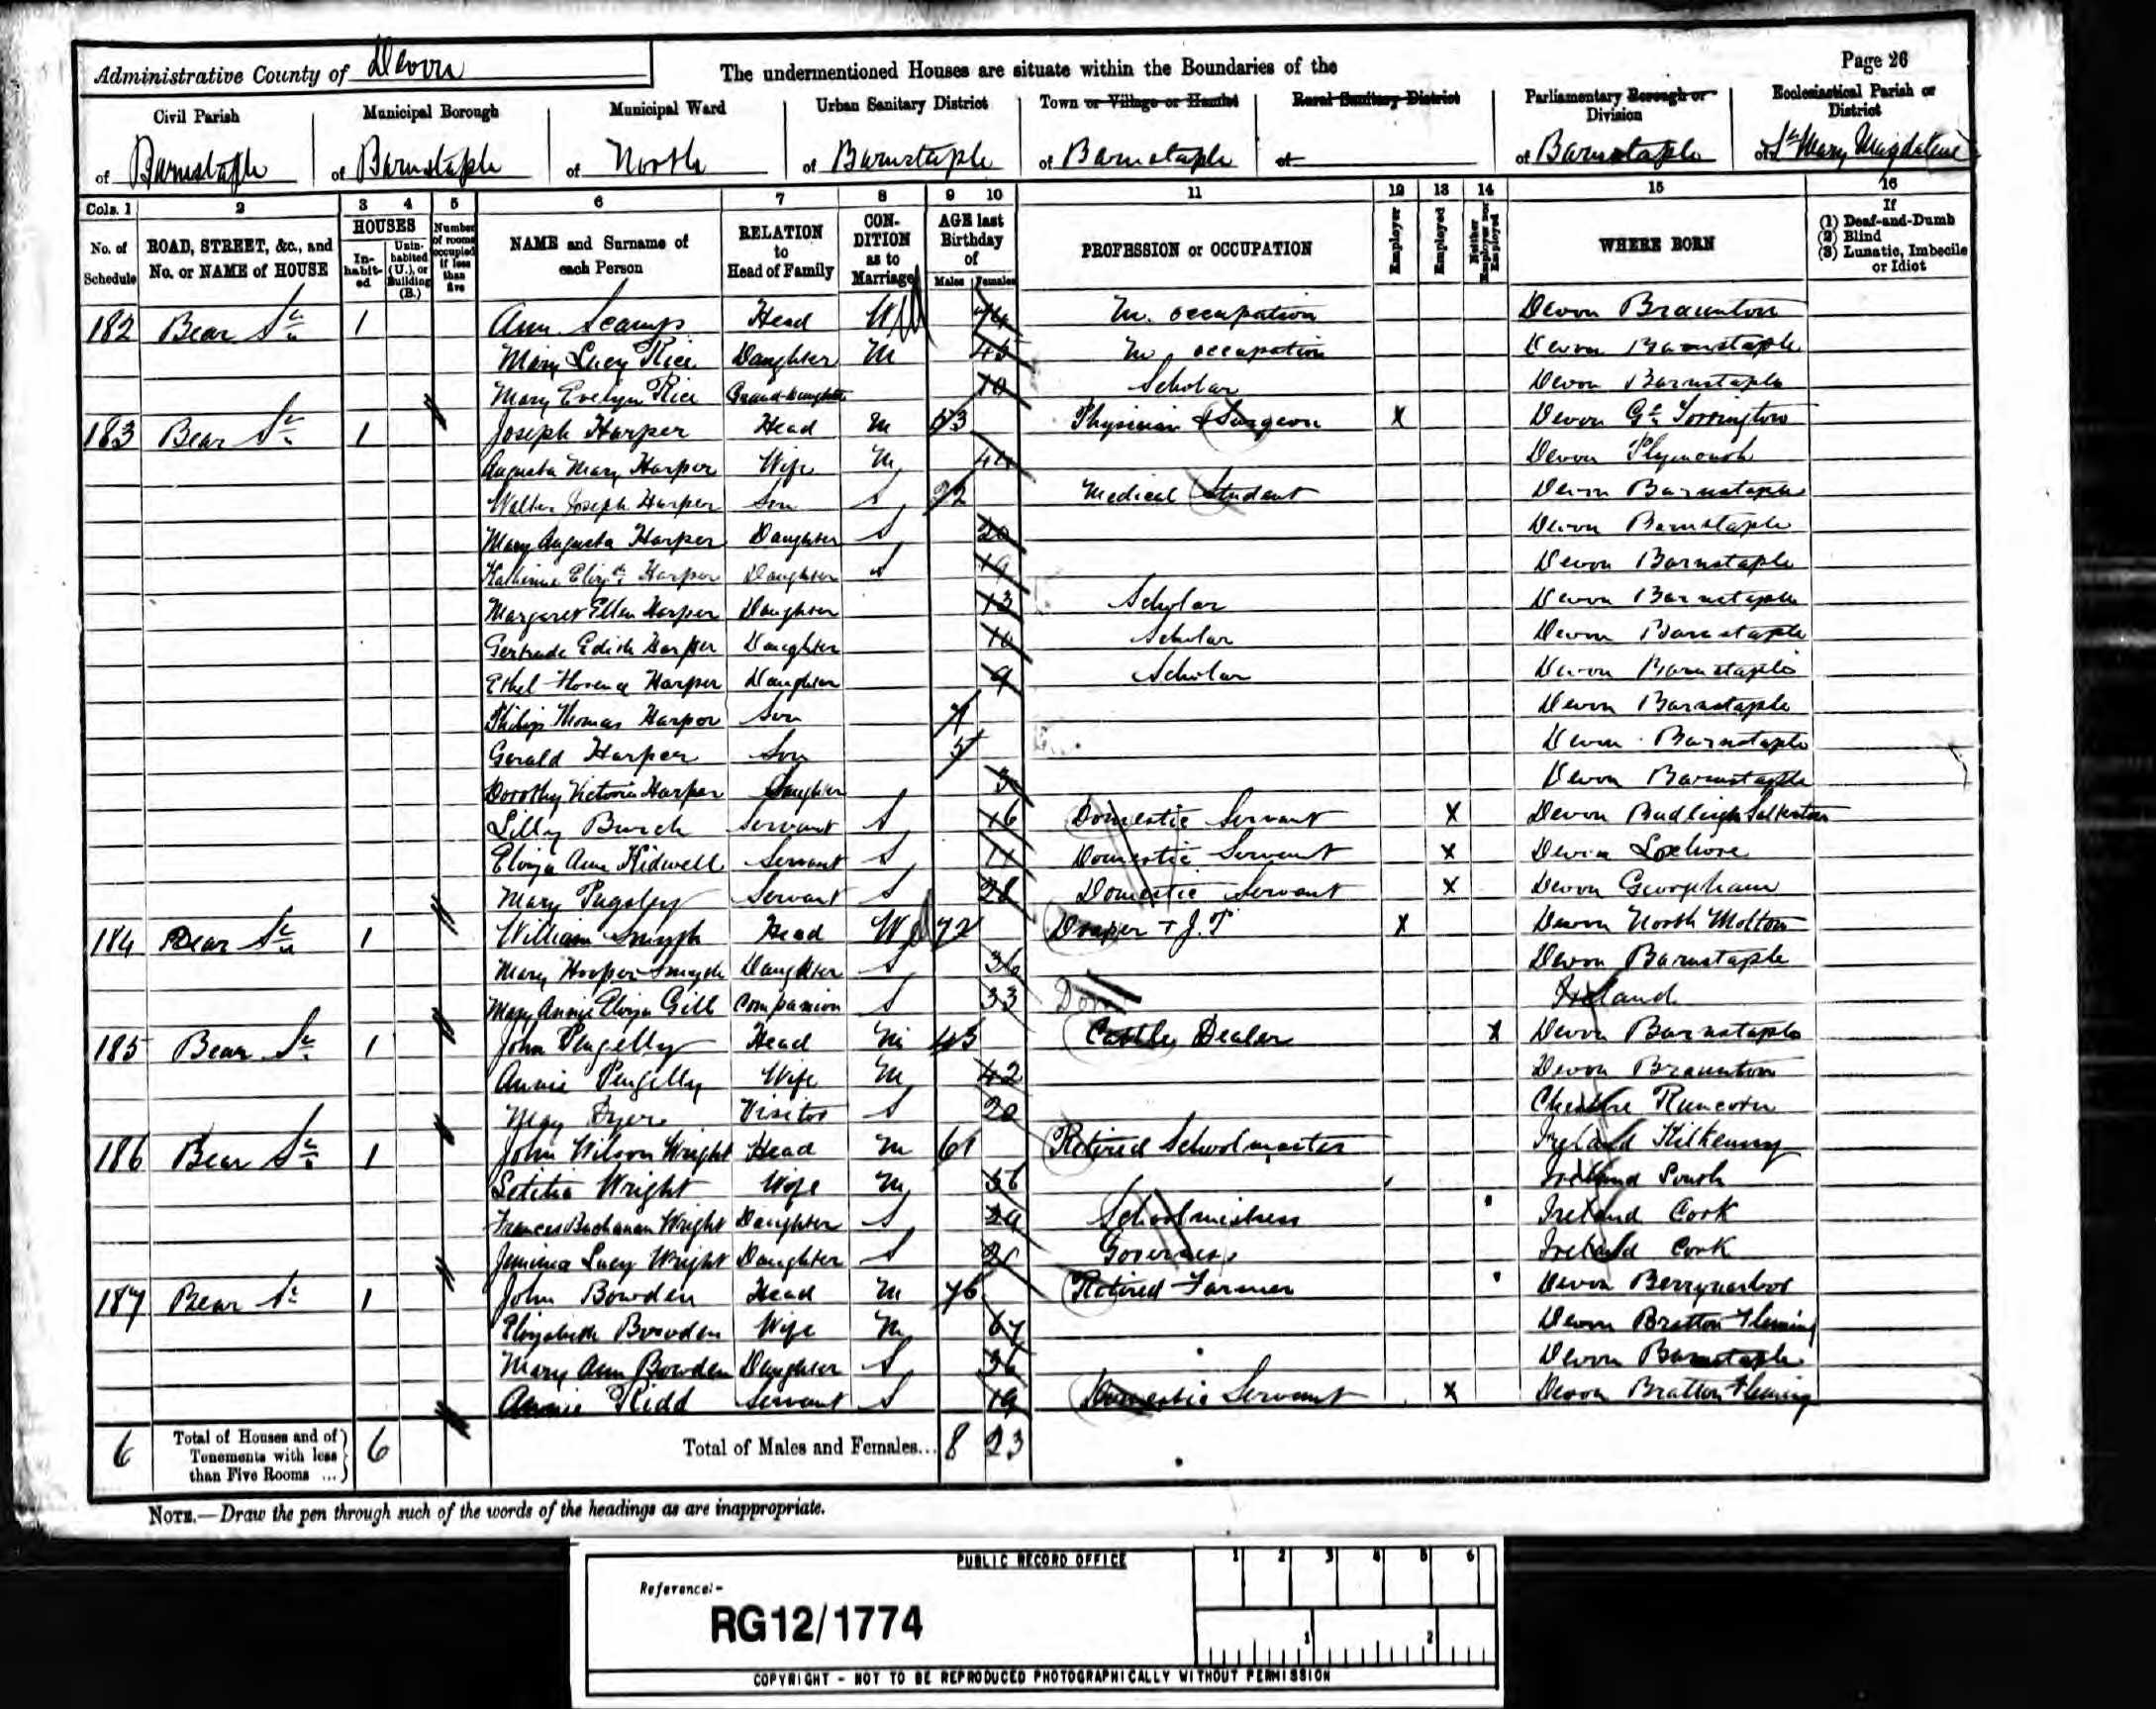 Administrative County of Devon
The undermentioned Houses are situate within the Boundaries of the
Page 26
Civil Parish of Barnstaple
Municipal Borough of Barnstaple
Municipal Ward of North
Urban Sanitary District of Barnstaple
Town or Village or Hamlet of Barnstaple
Rural Sanitary District of
Parliamentary Borough or Division of Barnstaple
Ecclesiastical Parish or District of St Mary Magdalene
Cols. 1 2 3 4 5 6 7 8 9 10 11 12 13 14 15 16
No. of Schedule
ROAD, STREET, &c., and No. or NAME of HOUSE
HOUSES
Inhabited
Uninhabited (U.), or Building (B.)
Number of rooms occupied if less than five
NAME and Surname of each Person
RELATION to Head of Family
CONDITION as to Marriage
AGE last Birthday of
Males Females
PROFESSION or OCCUPATION
Employer
Employed
Neither Employer nor Employed
WHERE BORN
If
(1) Deaf-and-Dumb
(2) Blind
(3) Lunatic, Imbecile or Idiot
182 Bear St 1 Ann Scamp Head Wd 74 occupation Devon Braunton
Mary Lucy Rice Daughter M 45 occupation Devon Barnstaple
Mary Evelyn Rice Grand-daughter 10 Scholar Devon Barnstaple
183 Bear St 1 Joseph Harper Head M Physician & Surgeon X Devon Gt Torrington
Augusta Mary Harper Wife M 44 Devon Plymouth
Walter Joseph Harper Son S 22 Medical Student Devon Barnstaple
Mary Augusta Harper Daughter S 20 Devon Barnstaple
Katherine Elizth Harper Daughter S 19 Devon Barnstaple
Margaret Ellen Harper Daughter 13 Scholar Devon Barnstaple
Gertrude Edith Harper Daughter Scholar Devon Barnstaple
Ethel Florence Harper Daughter 9 Scholar Devon Barnstaple
Philip Thomas Harper Son 7 Devon Barnstaple
Gerald Harper Son 5 Devon Barnstaple
Dorothy Victoria Harper Daughter 3 Devon Barnstaple
Lilly Burch Servant S 16 Domestic Servant X Devon Budleigh Salterton
Eliza Ann Kidwell Servant S Domestic Servant X Devon Loxhore
Mary Pugsley Servant S 28 Domestic Servant X Devon Georgeham
184 Bear St 1 William Smyth Head Wd 72 Draper + J.P X Devon North Molton
Mary Hooper Smyth Daughter S 36 Devon Barnstaple
Mary Annie Eliza Gill Companion S 33 Ireland
185 Bear St 1 John Pengelly Head M 43 Cattle Dealer X Devon Barnstaple
Annie Pengelly Wife M 42 Devon Braunton
May Dyer Visitor S 20 Cheshire Runcorn
186 Bear St 1 John Wilson Wright Head M 61 Retired Schoolmaster Ireland Kilkenny
Letitia Wright Wife M 56 Ireland
Frances Buchanan Wright Daughter S Schoolmistress Ireland Cork
Jemima Lucy Wright Daughter S Governess Ireland Cork
187 Bear St 1 John Bowden Head M 76 Retired Farmer Devon Berrynarbor
Elizabeth Bowden Wife M 67 Devon Bratton Fleming
Mary Ann Bowden Daughter S 36 Devon Barnstaple
Annie Ridd Servant S 19 Domestic Servant X Devon Bratton Fleming
6 Total of Houses and of Tenements with less than Five Rooms ... 6 Total of Males and Females... 8 23
NOTE.—Draw the pen through such of the words of the headings as are inappropriate.
PUBLIC RECORD OFFICE
1 2 3 4 5 6
Reference:-
RG12/1774
1 2
COPYRIGHT - NOT TO BE REPRODUCED PHOTOGRAPHICALLY WITHOUT PERMISSION